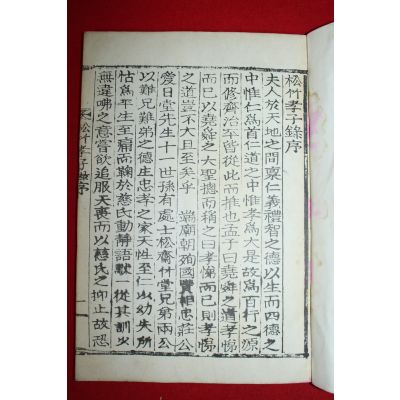 松竹孝子錄序
夫人於天地之間稟仁義禮智之德以生而四德之
中惟仁爲首仁道之中惟孝爲大是故爲百行之源
而修齊治平皆從此而推也孟子曰堯舜之道孝悌
而已以堯舜之大聖德而稱之曰孝悌而已則孝悌
之道豈不大且至矣乎 端廟朝殉國 忠莊公
愛日堂先生十一世孫有處士松齋 竹堂兄弟兩公
以難兄難弟之德庄忠孝之家天性至仁以幼失所
怙爲平生至痛而鞠於慈氏動靜語默一從其訓少
無違咈之意嘗欲追服天喪而以慈氏之抑止故恐
松竹孝子錄序
一